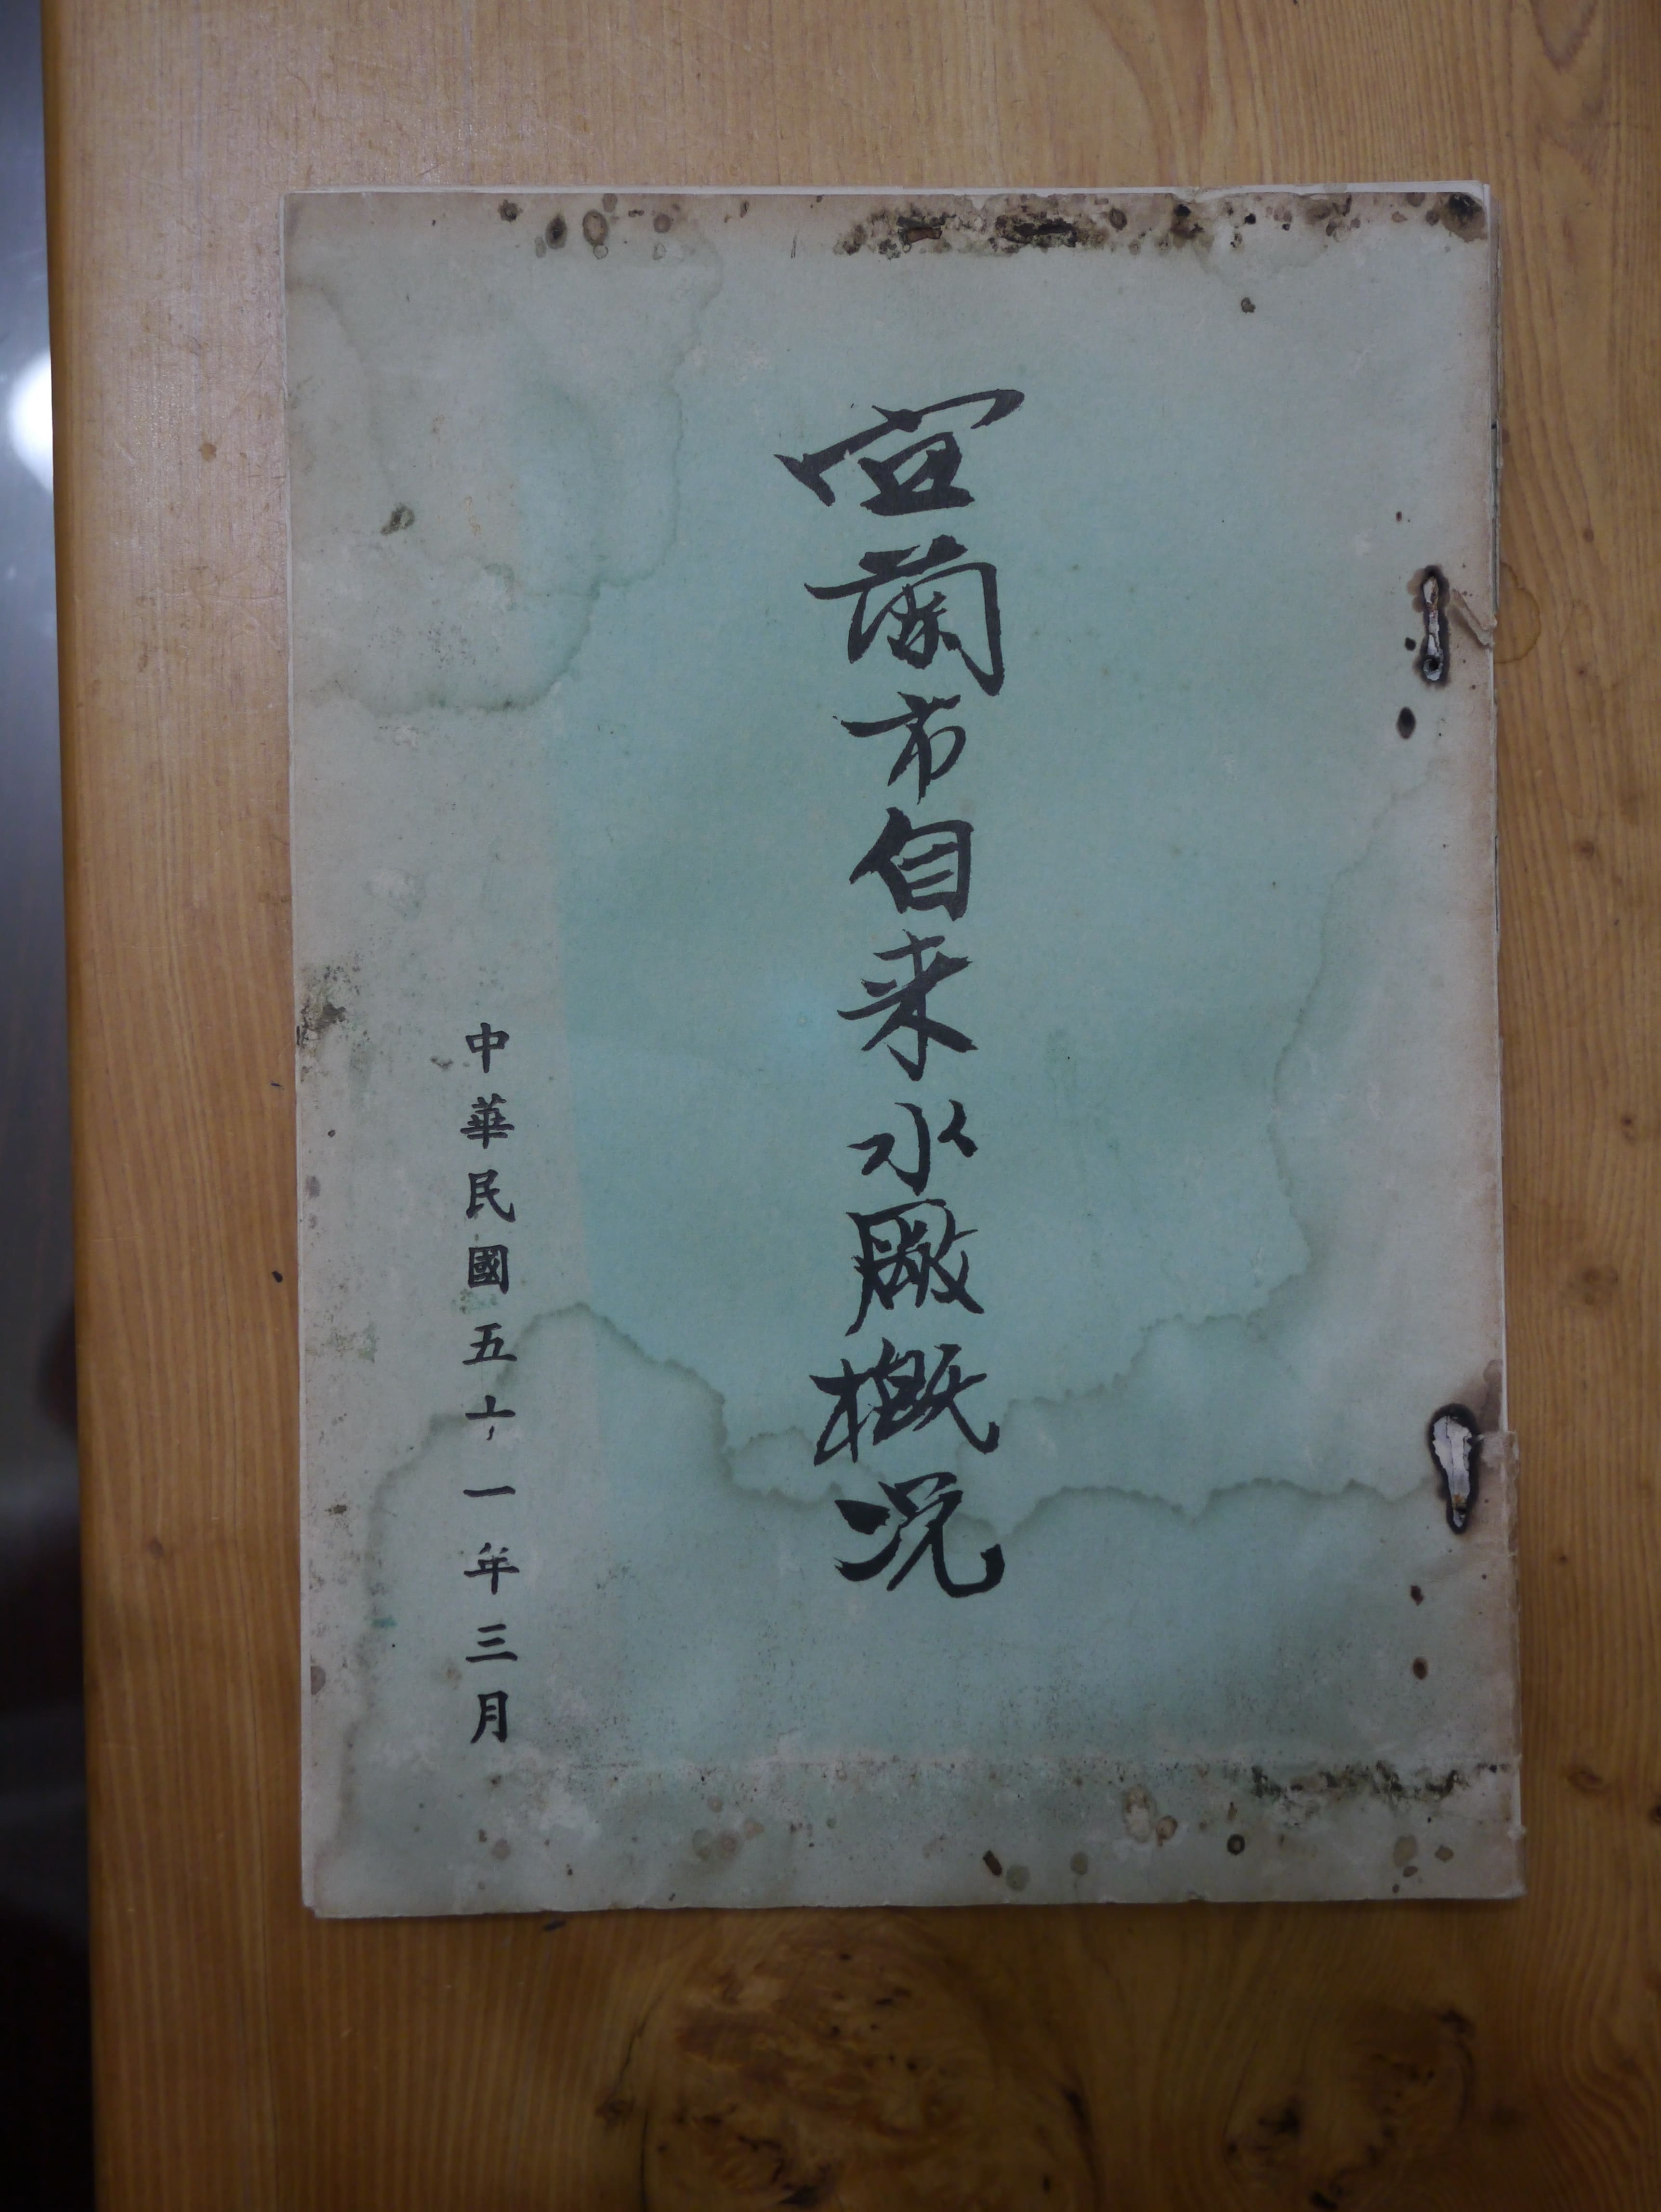 宜蘭市自来水厰概况
中華民國五十一年三月